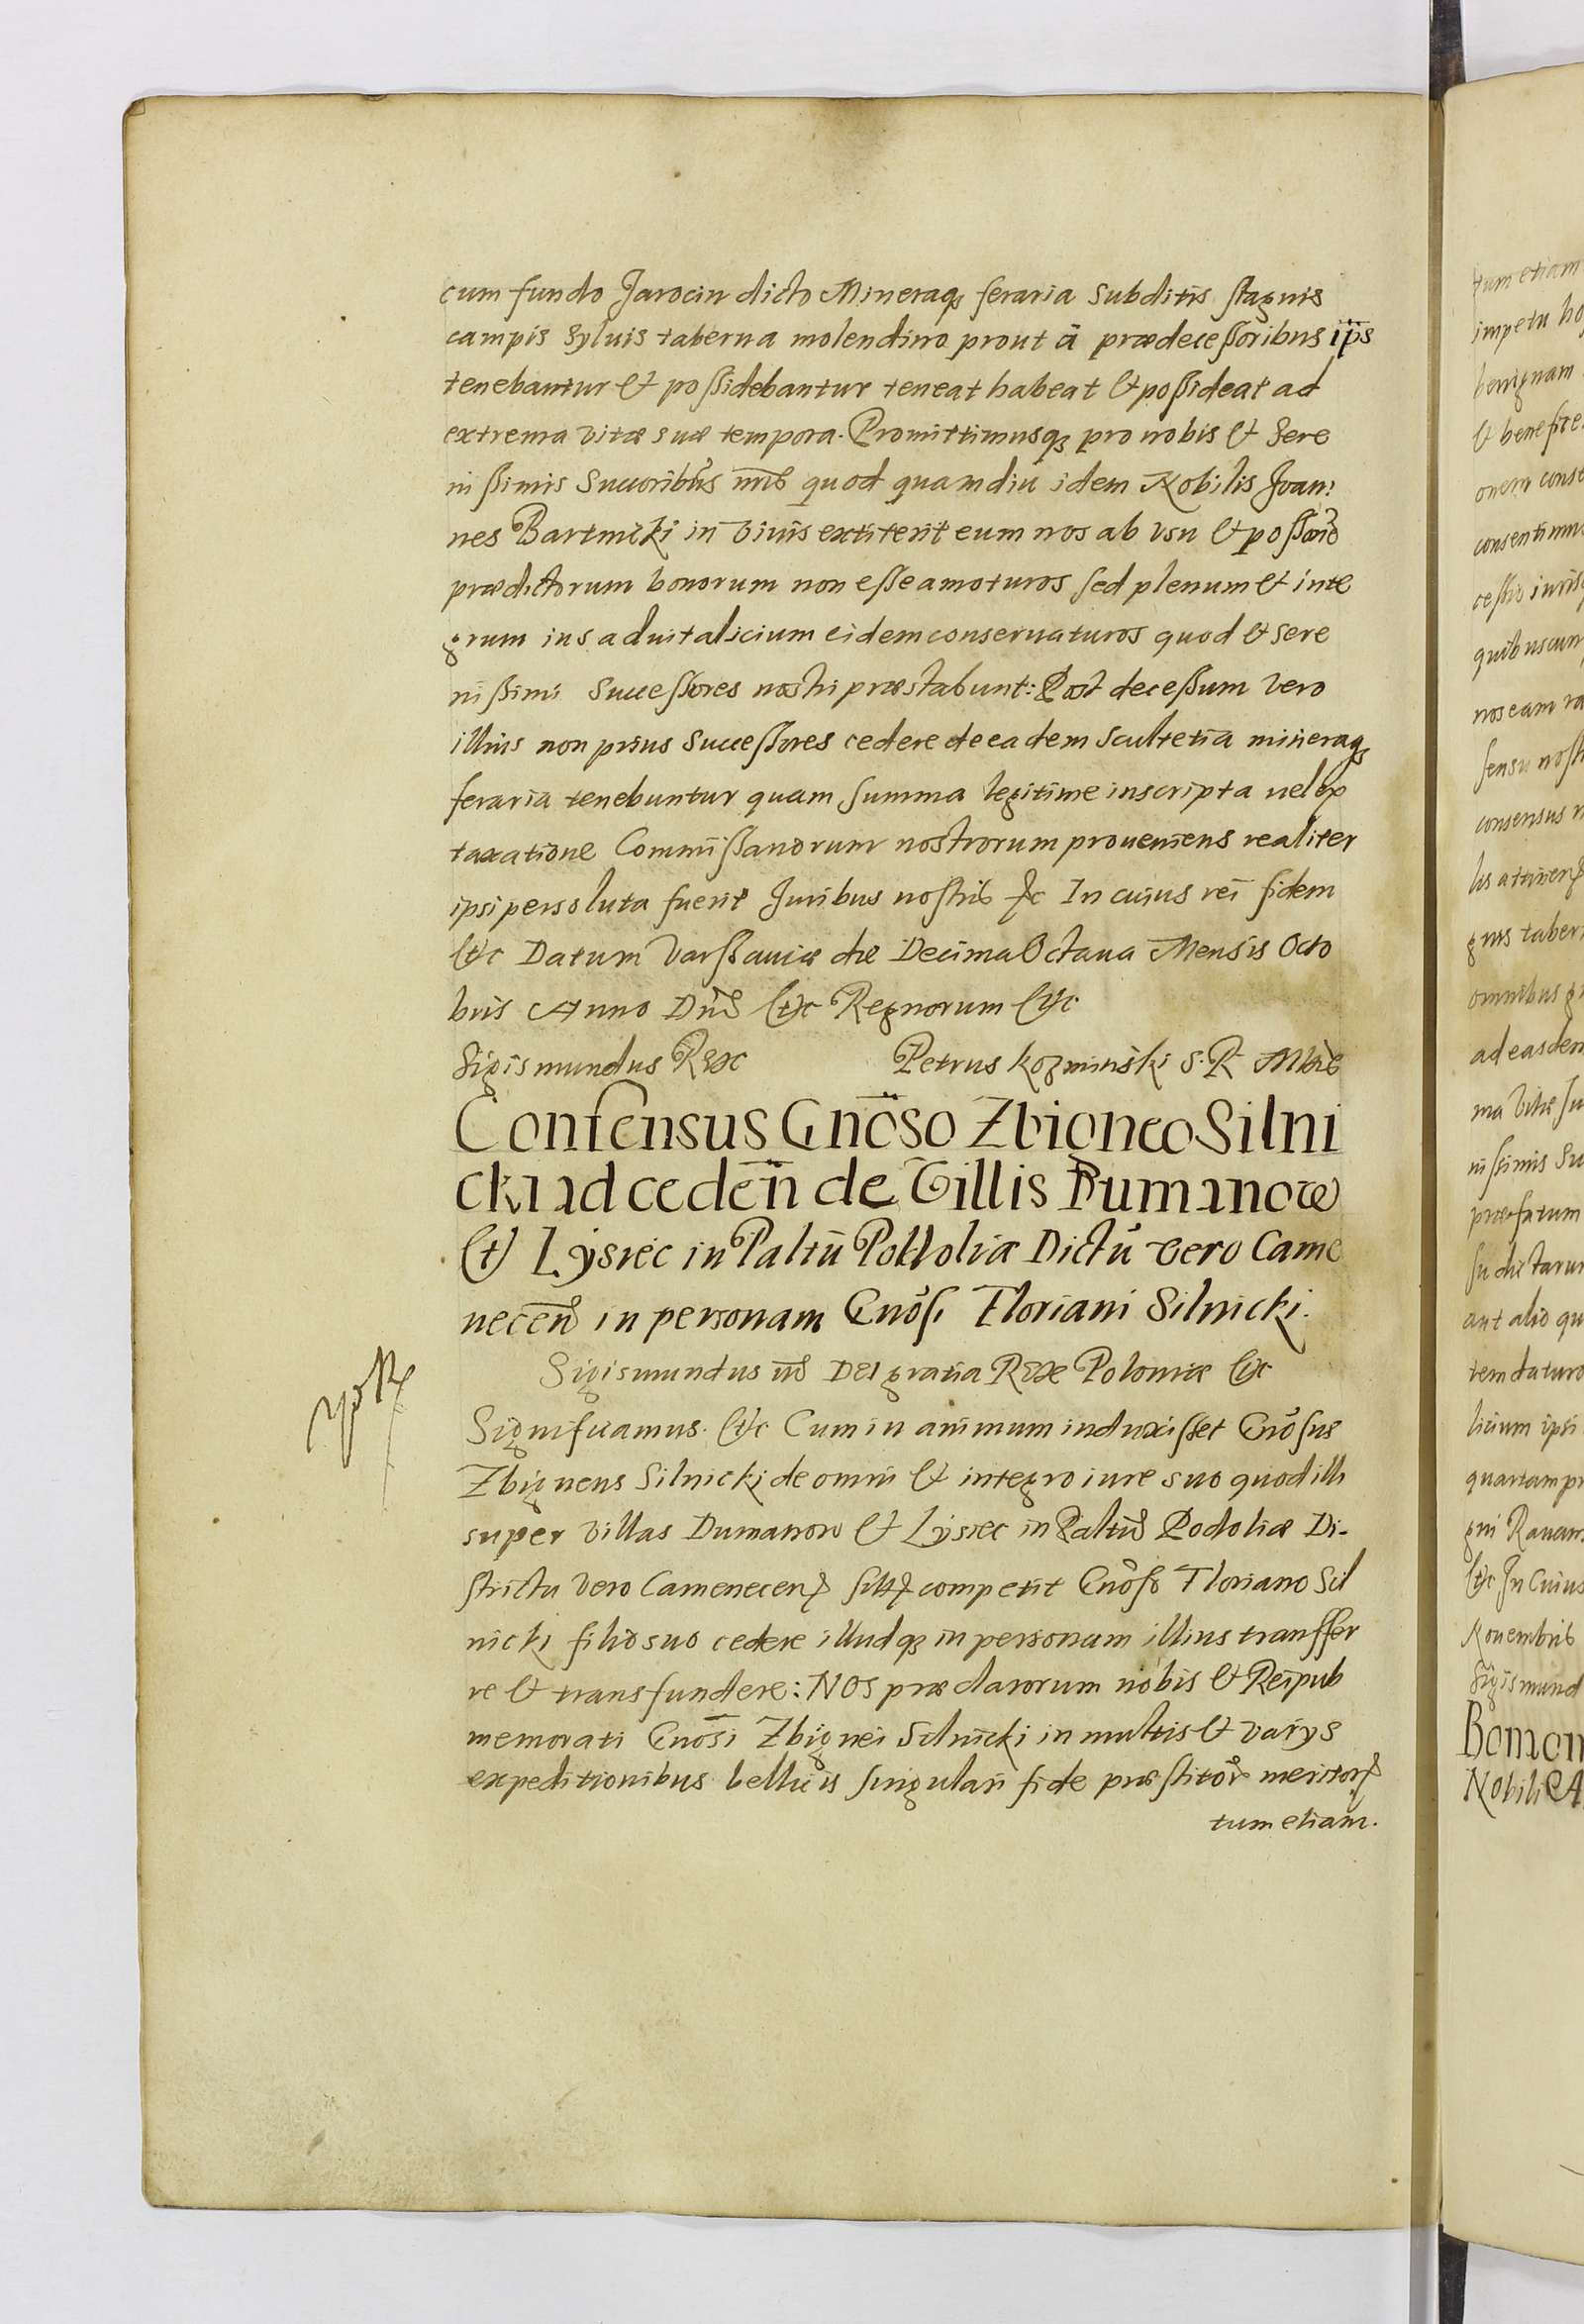 cum fundo Jarocin dicto Mineraqꝫ feraria Subditis stagnis
campis Syluis taberna molendino prout a prædecessoribus ip̄s
tenebantur & possidebantur teneat habeat & possideat ad
extrema vitæ suæ tempora. Promittimusqꝫ pro nobis & Sere
nissimis Succoribus nr̄is quod quamdiu idem Nobilis Joan:
nes Bartnicki in viuis extiterit eum nos ab vsu & possōne
prædictorum bonorum non esse amoturos sed plenum & inte
grum ius aduitalicium eidem conseruaturos quod & Sere
nissimi Successores nostri præstabunt: Post decessum vero
illius non prius Successores cedere de eadem Scultetia mineraqꝫ
feraria tenebuntur quam Summa legitime inscripta uel ex
taxatione Commissariorum nostrorum proueniens realiter
ipsi persoluta fuerit Juribus nostris &c In cuius rei fidem
&c Datum Varssauiæ die Decima Octaua Mensis Octo
bris Anno Dn̄i &c Regnorum &c
Sigismundus Rex Petrus Kozminski S. R. Mtis
Consensus Gnōso Zbigneo Silni
cki ad ceden̄ de Villis Dumanow
& Lysiec in Paltū Podoliæ Dictū vero Came
necen̄ in personam Gnōsi Floriani Silnicki.
Sigismundus iii Dei gratia Rex Poloniæ &c
Significamus. &c Cum in animum induxisset Gnōsus
Zbigneus Silnicki de omni & integro iure suo quod illi
super villas Dumanow & Lysiec in Paltū Podoliæ Di-
strictu vero Camenecenꝭ sitꝭ competit Gnōso Floriano Sil
nicki filio suo cedere illudqꝫ in personam illius transffer
re & transfundere: NOs præclarorum nobis & Reipub
memorati Gnōsi Zbignei Silnicki in multis & varys
expeditionibus bellicis singulari fide præstitor meritorꝭ
tum etiam.
tum etiam
benignam
consentimus
quibuscun
consensus
omnibus
ad easdem
nissimis Su
præfatum
aut alio qu
tem daturo
licium ipsi
quartam pr
&c In Cuius
Nouembris
Sigismund
Nobili A